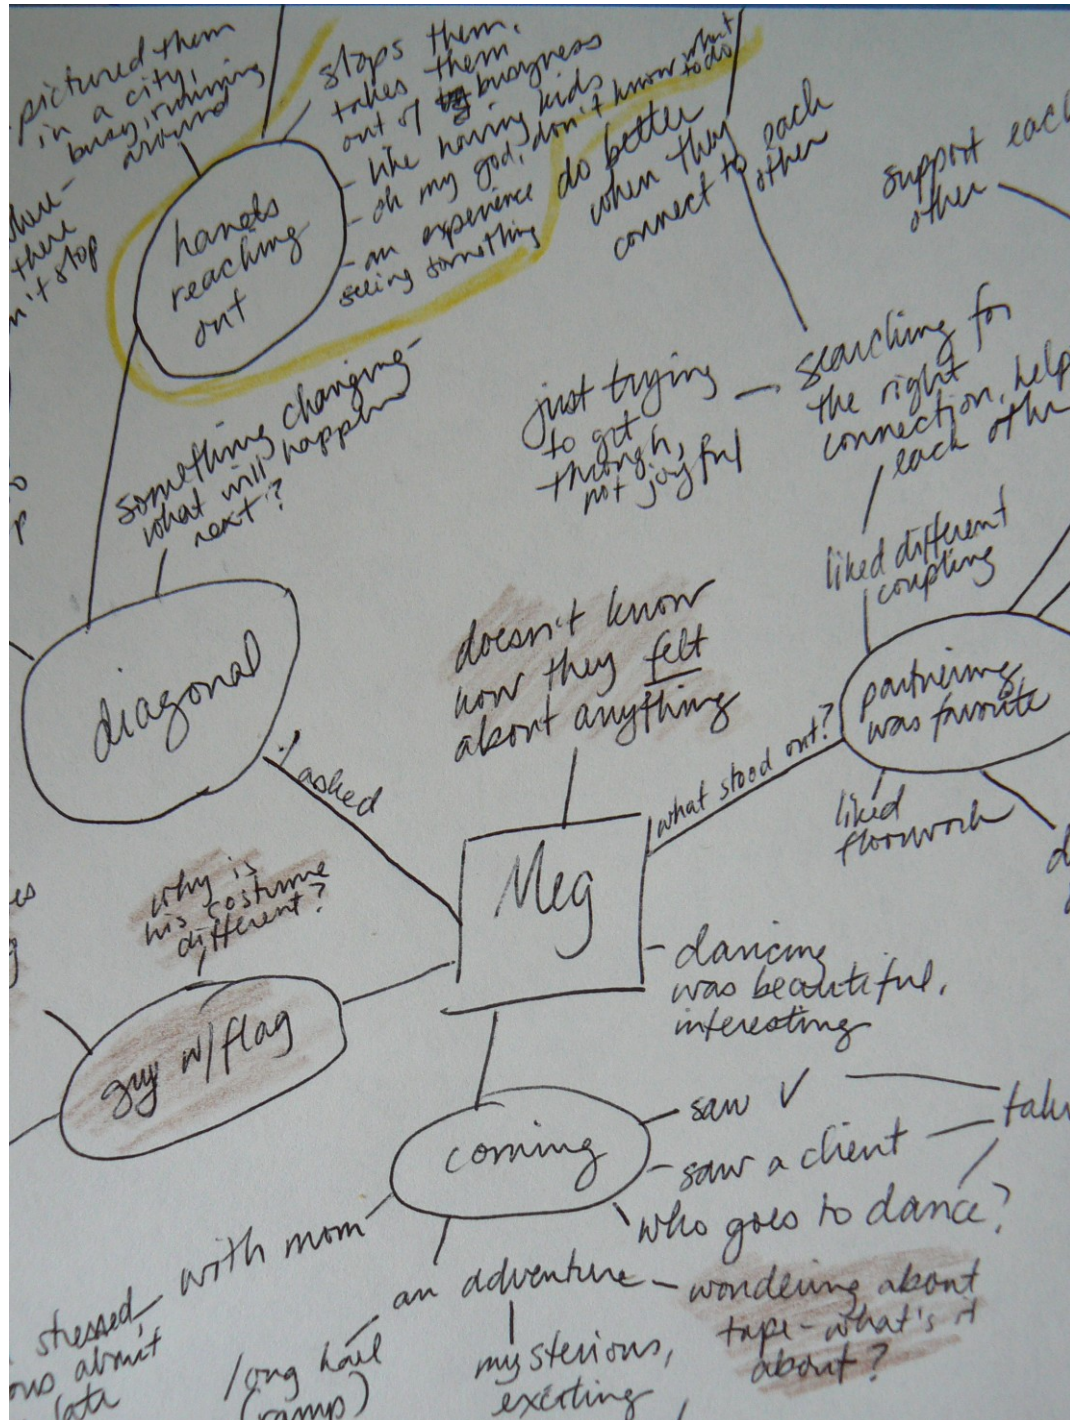 pictured them
in a city,
busy, running
around
there
n't stop
hands
reaching
out
stops them,
takes them
out of busyness
- like having kids
- oh my god, don't know what
to do
- an experience
seeing something
do better
when they
connect to each
other
support each
other
something changing -
what will happen
next?
just trying
to get
through,
not joyful
searching for
the right
connection, help
each other
liked different
coupling
diagonal
I asked
doesn't know
how they felt
about anything
what stood out?
partnering
was favorite
liked
floorwork
Meg
why is
his costume
different?
guy w/flag
- dancing
was beautiful,
interesting
coming
saw V
saw a client
who goes to dance?
with mom
stressed,
about
late
an adventure
long hall
(ramp)
mysterious,
exciting
wondering about
tape - what's it
about?